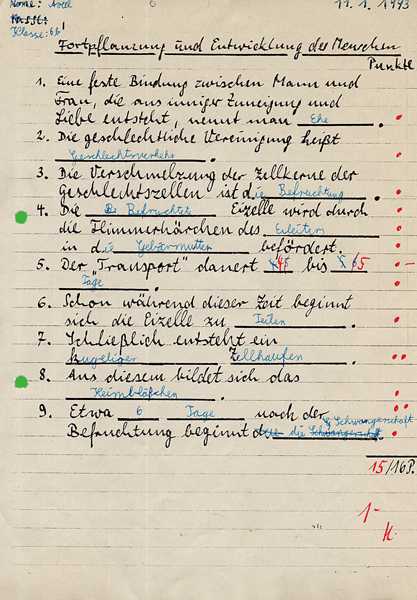 Name: Axel 11.1.1993
Klasse: 6b
Fortpflanzung und Entwicklung des Menschen
Punkte
1. Eine feste Bindung zwischen Mann und
Frau, die aus inniger Zuneigung und
Liebe entsteht, nennt man Ehe.
2. Die geschlechtliche Vereinigung heißt
Geschlechtsverkehr.
3. Die Verschmelzung der Zellkerne der
Geschlechtszellen ist die Befruchtung.
4. Die Befruchtete Eizelle wird durch
die Flimmerhärchen des Eileiters
in die Gebärmutter befördert.
5. Der "Transport" dauert 4 bis 5
Tage.
6. Schon während dieser Zeit beginnt
sich die Eizelle zu Teilen.
7. Schließlich entsteht ein
kugeliger Zellhaufen.
8. Aus diesem bildet sich das
Keimbläschen.
9. Etwa 6 Tage nach der
Schwangerschaft
Befruchtung beginnt die Schwangerschaft.
15/16P.
1-